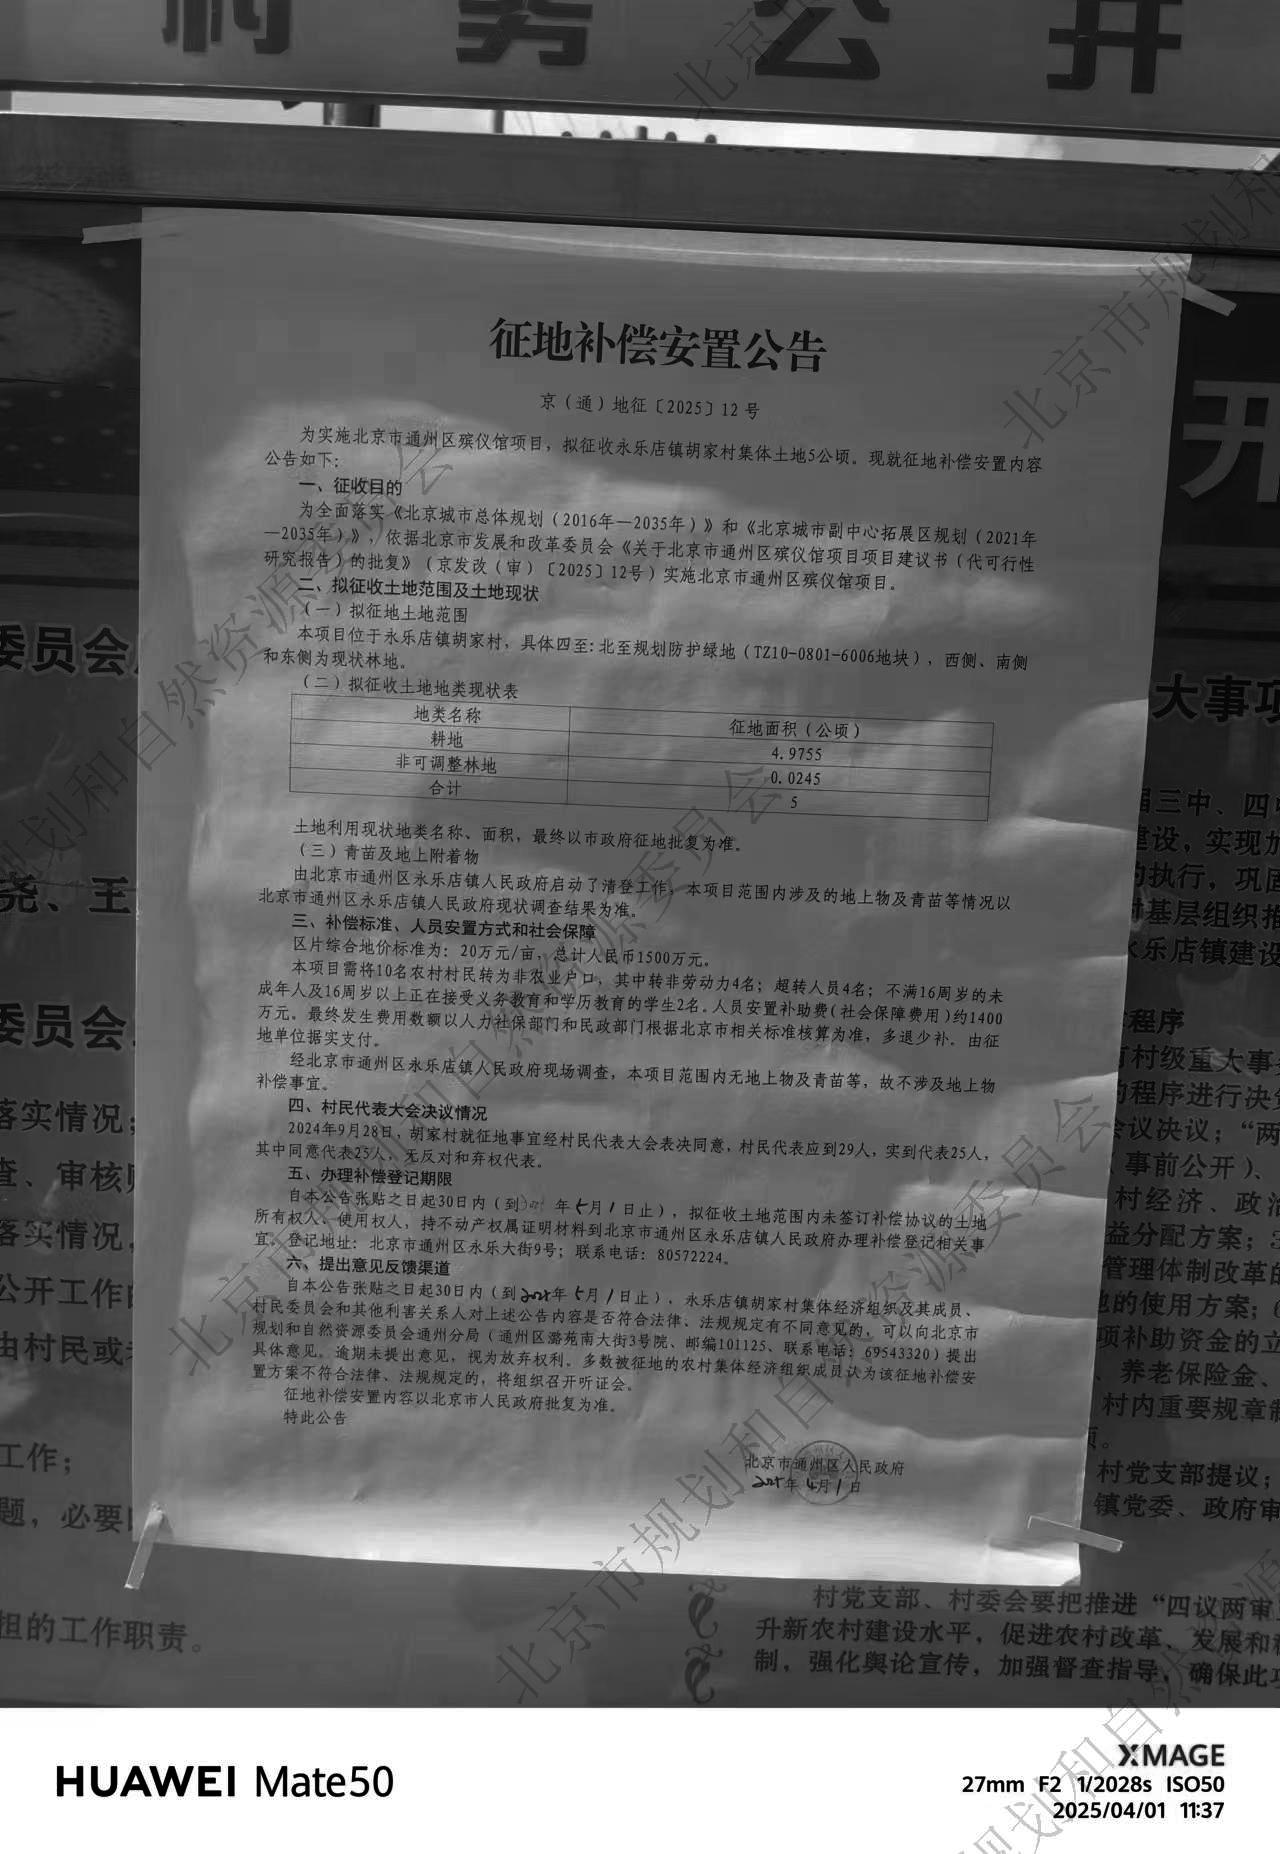 村务公开
征地补偿安置公告
京（通）地征〔2025〕12号
为实施北京市通州区殡仪馆项目，拟征收永乐店镇胡家村集体土地5公顷。现就征地补偿安置内容
公告如下：
一、征收目的
为全面落实《北京城市总体规划（2016年—2035年）》和《北京城市副中心拓展区规划（2021年
—2035年）》，依据北京市发展和改革委员会《关于北京市通州区殡仪馆项目项目建议书（代可行性
研究报告）的批复》（京发改（审）〔2025〕12号）实施北京市通州区殡仪馆项目。
二、拟征收土地范围及土地现状
（一）拟征地土地范围
本项目位于永乐店镇胡家村，具体四至：北至规划防护绿地（TZ10-0801-6006地块），西侧、南侧
和东侧为现状林地。
（二）拟征收土地地类现状表
地类名称 征地面积（公顷）
耕地 4.9755
非可调整林地 0.0245
合计 5
土地利用现状地类名称、面积，最终以市政府征地批复为准。
（三）青苗及地上附着物
由北京市通州区永乐店镇人民政府启动了清登工作，本项目范围内涉及的地上物及青苗等情况以
北京市通州区永乐店镇人民政府现状调查结果为准。
三、补偿标准、人员安置方式和社会保障
区片综合地价标准为：20万元/亩，总计人民币1500万元。
本项目需将10名农村村民转为非农业户口，其中转非劳动力4名；超转人员4名；不满16周岁的未
成年人及16周岁以上正在接受义务教育和学历教育的学生2名。人员安置补助费（社会保障费用）约1400
万元。最终发生费用数额以人力社保部门和民政部门根据北京市相关标准核算为准，多退少补。由征
地单位据实支付。
经北京市通州区永乐店镇人民政府现场调查，本项目范围内无地上物及青苗等，故不涉及地上物
补偿事宜。
四、村民代表大会决议情况
2024年9月28日，胡家村就征地事宜经村民代表大会表决同意，村民代表应到29人，实到代表25人，
其中同意代表25人，无反对和弃权代表。
五、办理补偿登记期限
自本公告张贴之日起30日内（到2025年5月1日止），拟征收土地范围内未签订补偿协议的土地
所有权人、使用权人，持不动产权属证明材料到北京市通州区永乐店镇人民政府办理补偿登记相关事
宜。登记地址：北京市通州区永乐大街9号；联系电话：80572224。
六、提出意见反馈渠道
自本公告张贴之日起30日内（到2025年5月1日止），永乐店镇胡家村集体经济组织及其成员、
村民委员会和其他利害关系人对上述公告内容是否符合法律、法规规定有不同意见的，可以向北京市
规划和自然资源委员会通州分局（通州区潞苑南大街3号院、邮编101125、联系电话：69543320）提出
具体意见。逾期未提出意见，视为放弃权利。多数被征地的农村集体经济组织成员认为该征地补偿安
置方案不符合法律、法规规定的，将组织召开听证会。
征地补偿安置内容以北京市人民政府批复为准。
特此公告
北京市通州区人民政府
2025年4月1日
开
委员会
尧、王
委员会
落实情况；
查、审核
落实情况，
公开工作
由村民或
工作；
题，必要
担的工作职责。
大事项
届三中、四中
建设，实现
的执行，巩固
基层组织
永乐店镇建设
程序
村级重大事
的程序进行决
会议决议；“两
（事前公开）、
村经济、政治
益分配方案；3
管理体制改革的
的使用方案；6
项补助资金的立
、养老保险金、
村内重要规章制
村党支部提议；
镇党委、政府审
村党支部、村委会要把推进“四议两审
升新农村建设水平，促进农村改革、发展和
制，强化舆论宣传，加强督查指导，确保此项
北京市规划和自然资源委员会
HUAWEI Mate50
XMAGE
27mm F2 1/2028s ISO50
2025/04/01 11:37